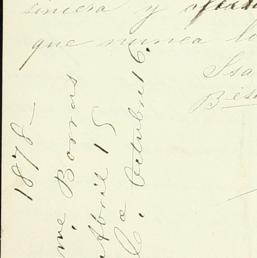 sincera y
que nunca lo
Isa
1878-
me Borras
Abril 15
Octubre 16.